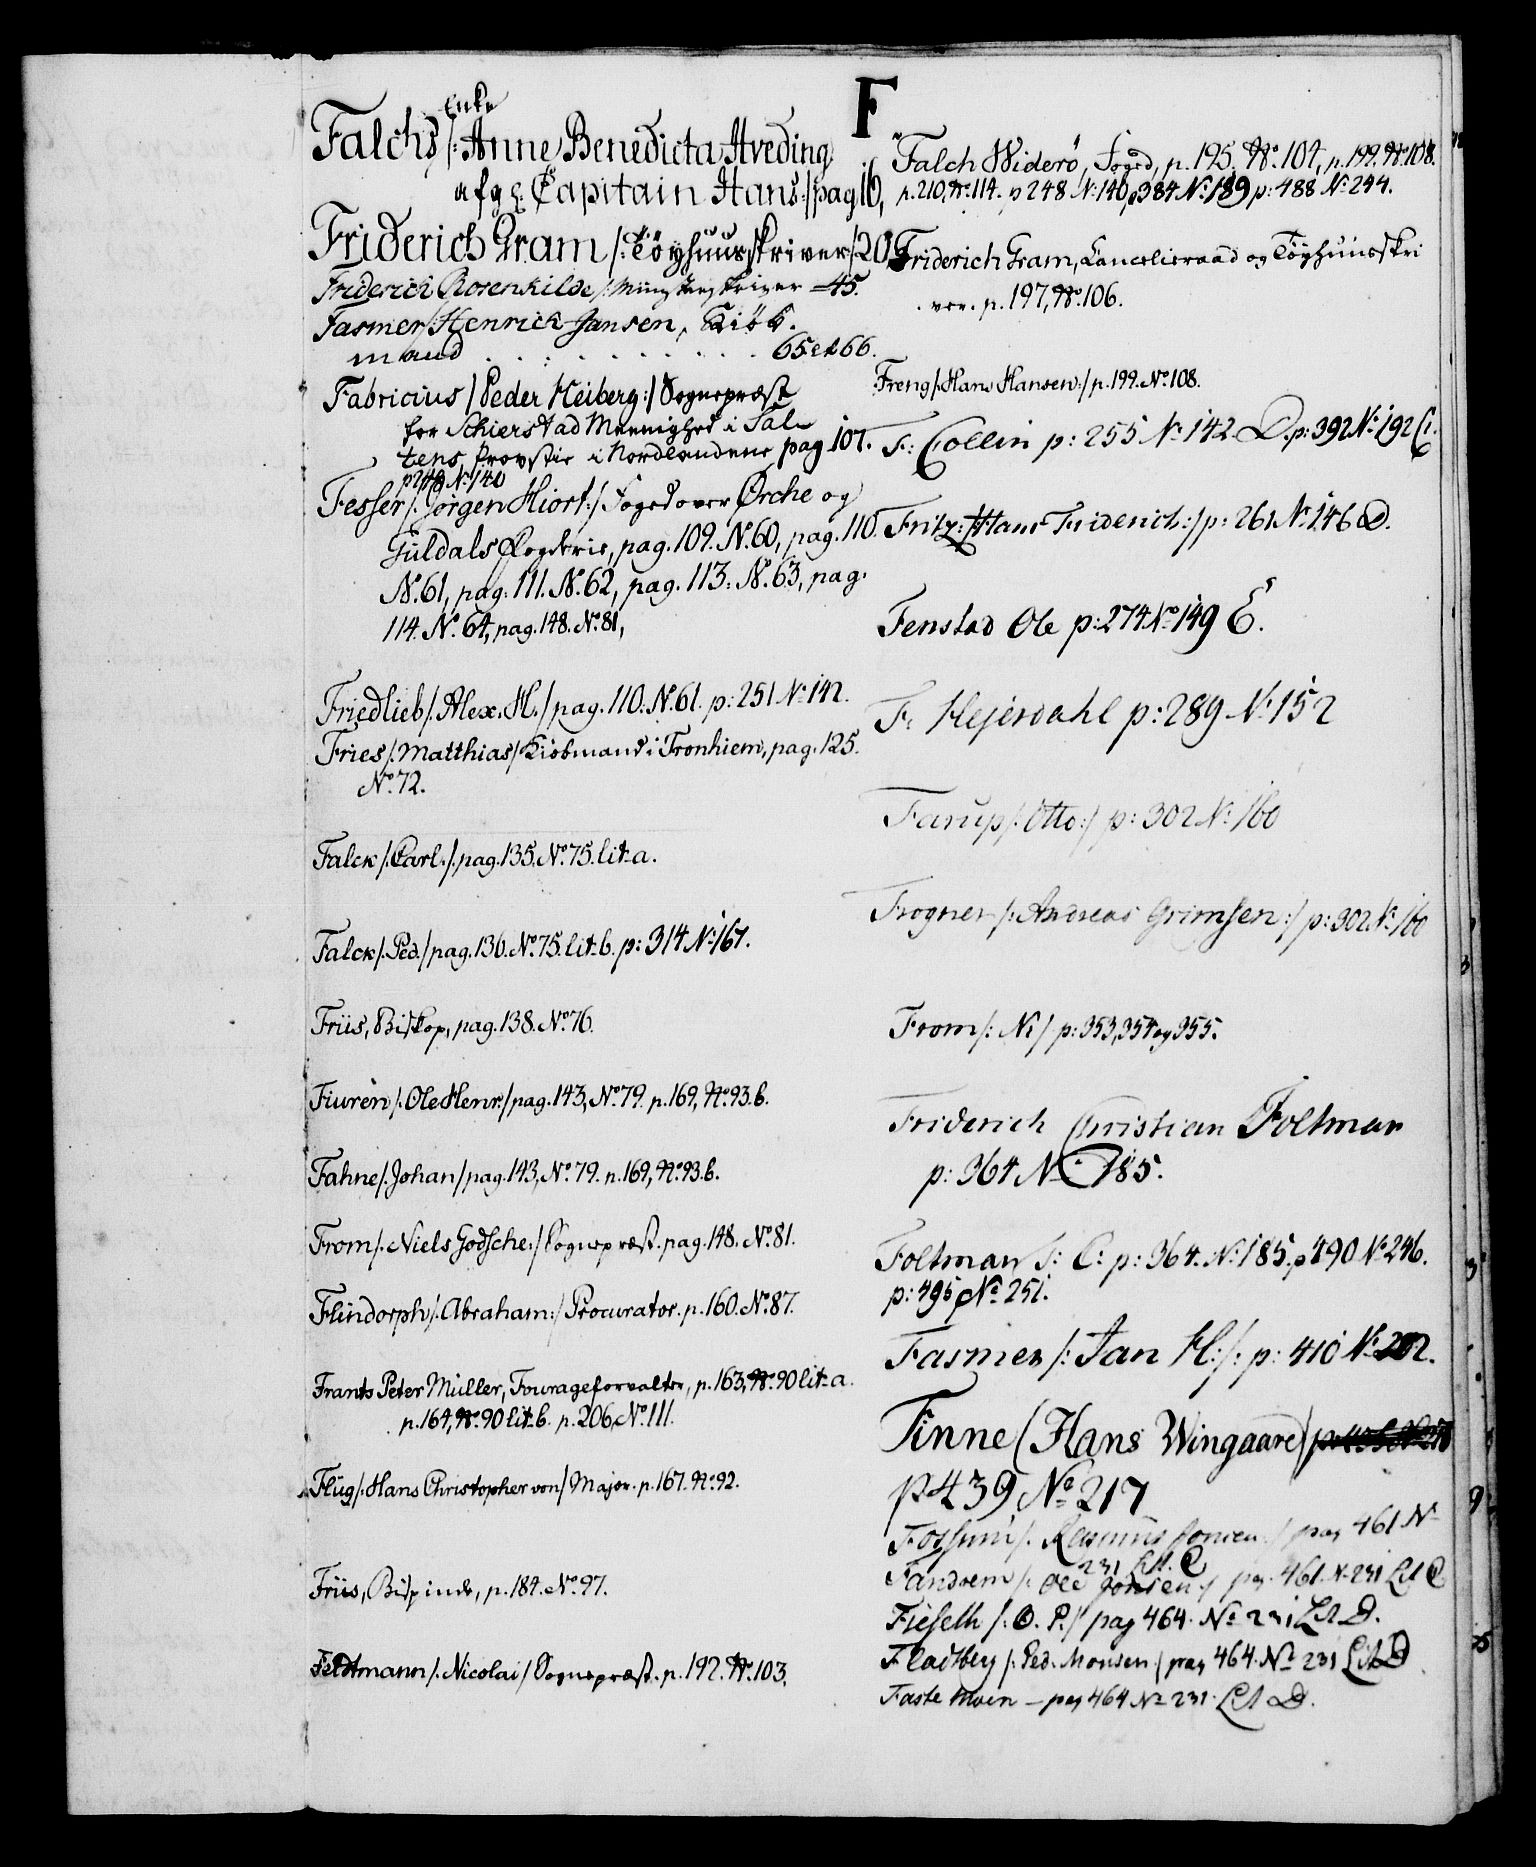 F
Enke
Falchs /: Anne Benedicta Hveding
afg: Capitain Hans :/ pag 16,
Friderich Gram /: Töyhuusskriver :/ 20
Friderich Rosenkilde /: Myntskriver - 45.
Fasmer /: Henrich Jansen, Kiöb.
mand . . . . . . . . . . 65 et 66.
Fabricius / Peder Heiberg :/ Sognepræst
for Schierstad Meenighed i Sal-
tens Provstie i Nordlandene pag 107.
p 248 N: 140
Fesser /: Jörgen Hiort :/ Foged over Ørche og
Guldals Fogderie, pag. 109. No. 60, pag. 110.
No. 61, pag: 111. No. 62, pag. 113: No. 63, pag.
114. No. 64, pag. 148. No. 81,
Friedlieb /: Alex. H. / pag. 110. No. 61. p: 251 No 142.
Fries /: Matthias / Kiöbmand i Tronhiem, pag. 125.
No. 72.
Falck /: Carl :/ pag. 135. No. 75. lit. a.
Falck /: Ped. / pag. 136. No. 75. lit. b. p: 314 No: 167.
Friis, Biskop, pag. 138. No. 76.
Fiurén /: Ole Henr. / pag. 143, No. 79. p. 169, No. 93. b.
Fahne /: Johan / pag. 143, No. 79. p. 169, No. 93. b.
From /: Niels Godsche :/ Sognepræst. pag. 148. No. 81.
Flindorph /: Abraham :/ Procurator. p. 160. No. 87.
Frants Peter Müller, Fourageforvalter, p. 163, No. 90 lit. a.
p. 164, No. 90 lit. b. p. 206, No. 111.
Flüg /: Hans Christopher von / Major. p. 167. No. 92.
Friis, Bispinde, p. 184. No. 97.
Feldtmann /: Nicolai / Sognepræst. p. 192. No. 103.
Falch Widerö, Foged, p. 195. No. 104, p. 199. No. 108.
p. 210, No. 114. p 248 N: 140, p 384 No: 189 p: 488 No 244.
Friderich Gram, Cancelieraad og Töyhuusskri
ver. p. 197, No. 106.
Freng /: Hans Hansen :/ p. 199. No. 108.
F: Collin p: 255 No 142 D. p: 392 No: 192 C.
Fritz /: Hans Friderich :/ p: 261 No: 146 D.
Fenstad Ole p: 274 No 149 E.
F: Hejerdahl p: 289 No: 152
Farup /: Otto :/ p: 302 No: 160
Frogner /: Andreas Grimsen :/ p: 302 No: 160
From /: N: / p: 353, 354 og 355.
Friderich Christian Foltmar
p: 364 No: 185.
Foltmar F: C: p: 364. No: 185. p 490 No 246.
p: 495 No 251.
Fasmer /: Jan H: /: p: 410 No: 202.
Finne (Hans Wingaard)
p 439 No 217
Fossum /: Rasmus Jonsen :/ pag 461 No
231 Lit. C
Fandrem /: Ole Jonsen :/ pag. 461. No 231 Lit C
Fieseth /: O. P. :/ pag 464. No 231 Lit D.
Fladtbey /: Ped. Monsen / pag 464. No 231 Lit D
Faste Moen - pag 464 No 231. Lit D.